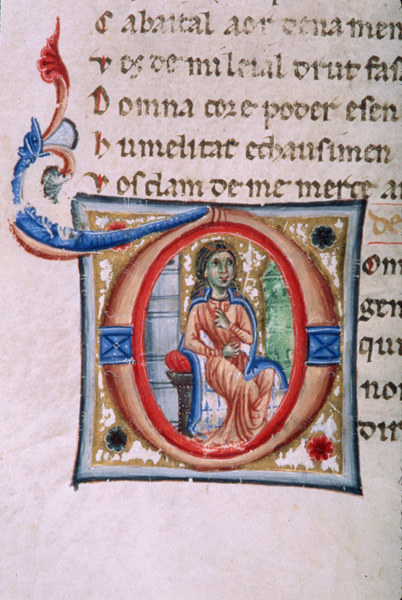 C abaital aor dena men
v os de mil eial drut fas
D omna core poder esen
h umelitat echausimen
v osclam de me merce
de
Om
gen
qui
non
dir